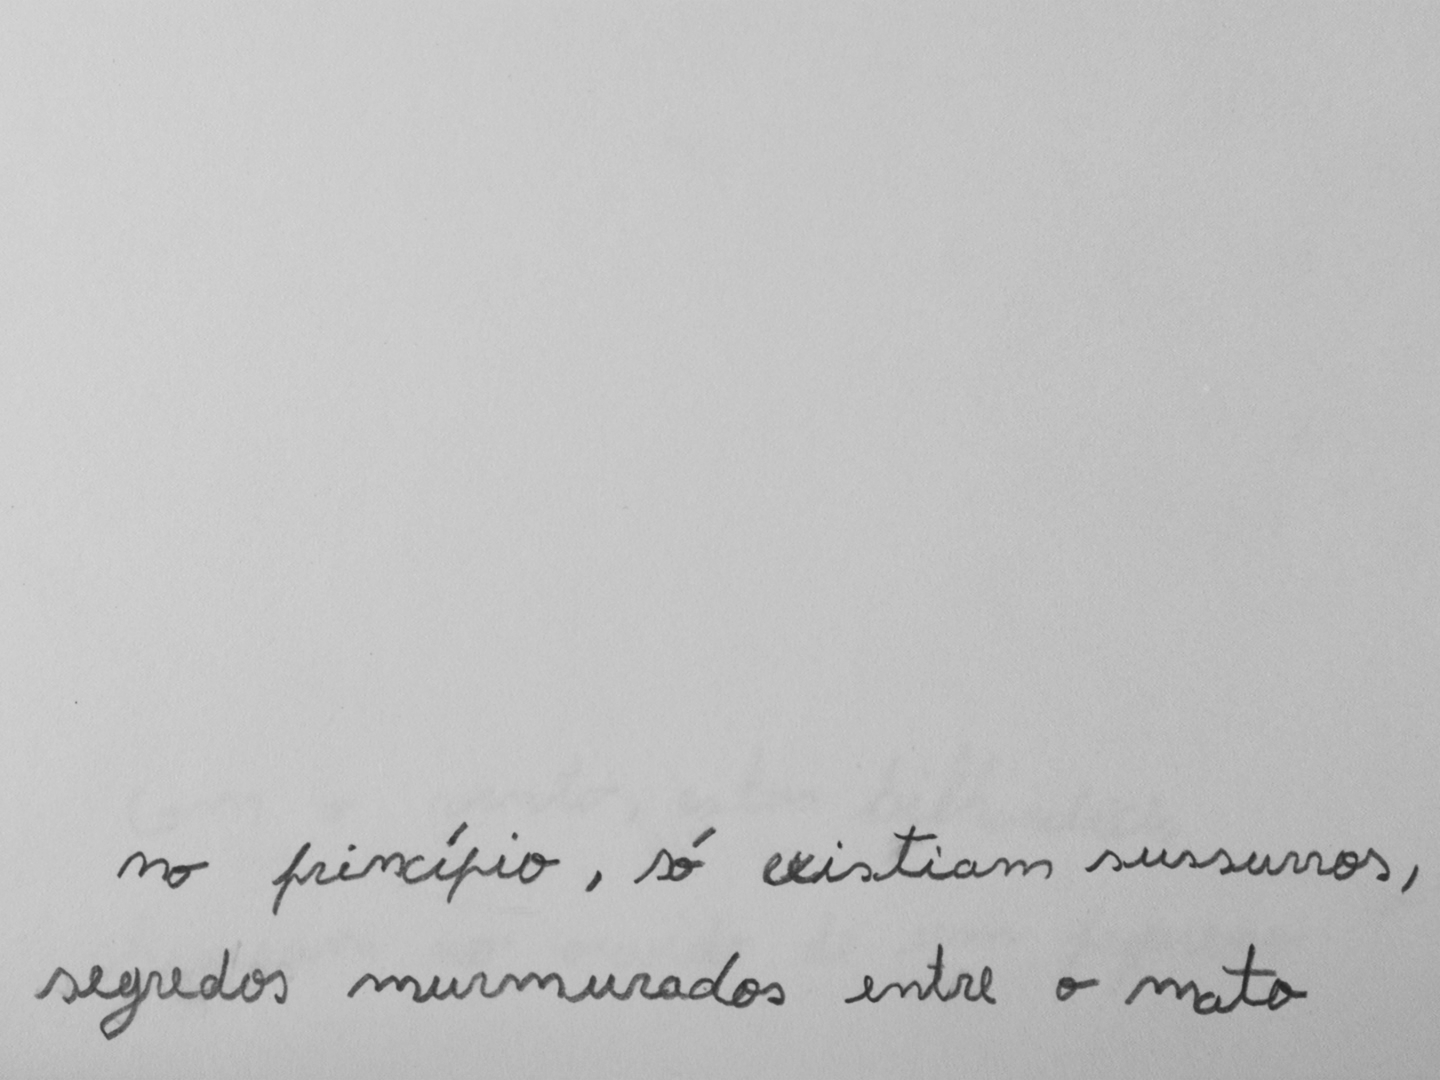 no princípio, só existiam sussurros,
segredos murmurados entre o mato